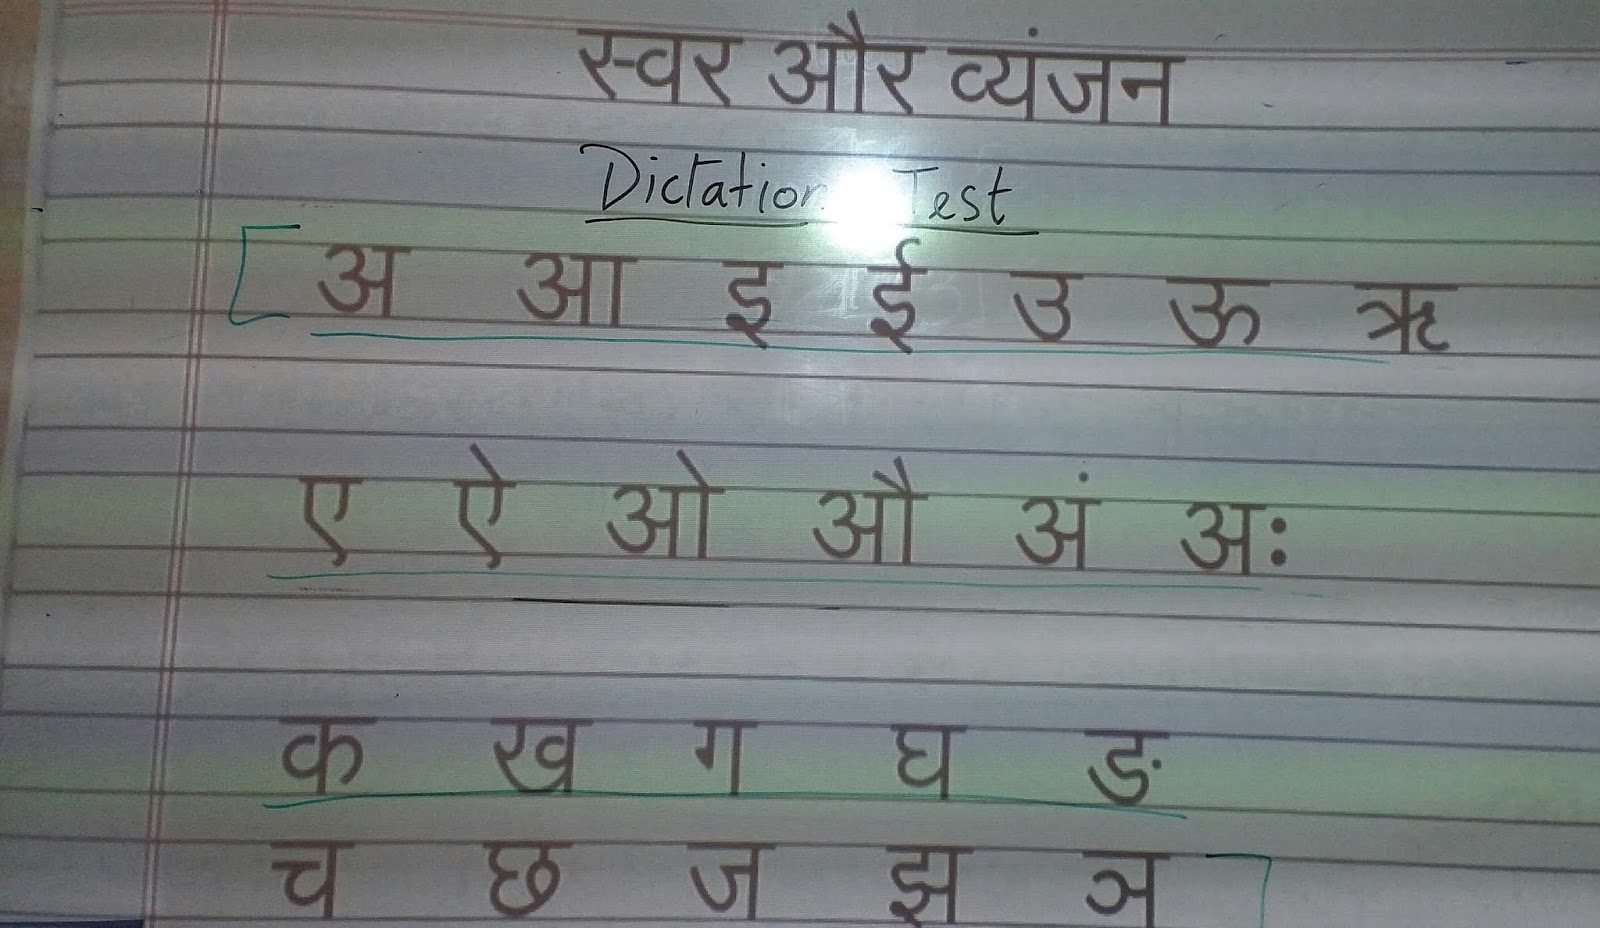 स्वर और व्यंजन
Dictation Test
अ आ इ ई उ ऊ ऋ
ए ऐ ओ औ अं अः
क ख ग घ ङ
च छ ज झ ञ